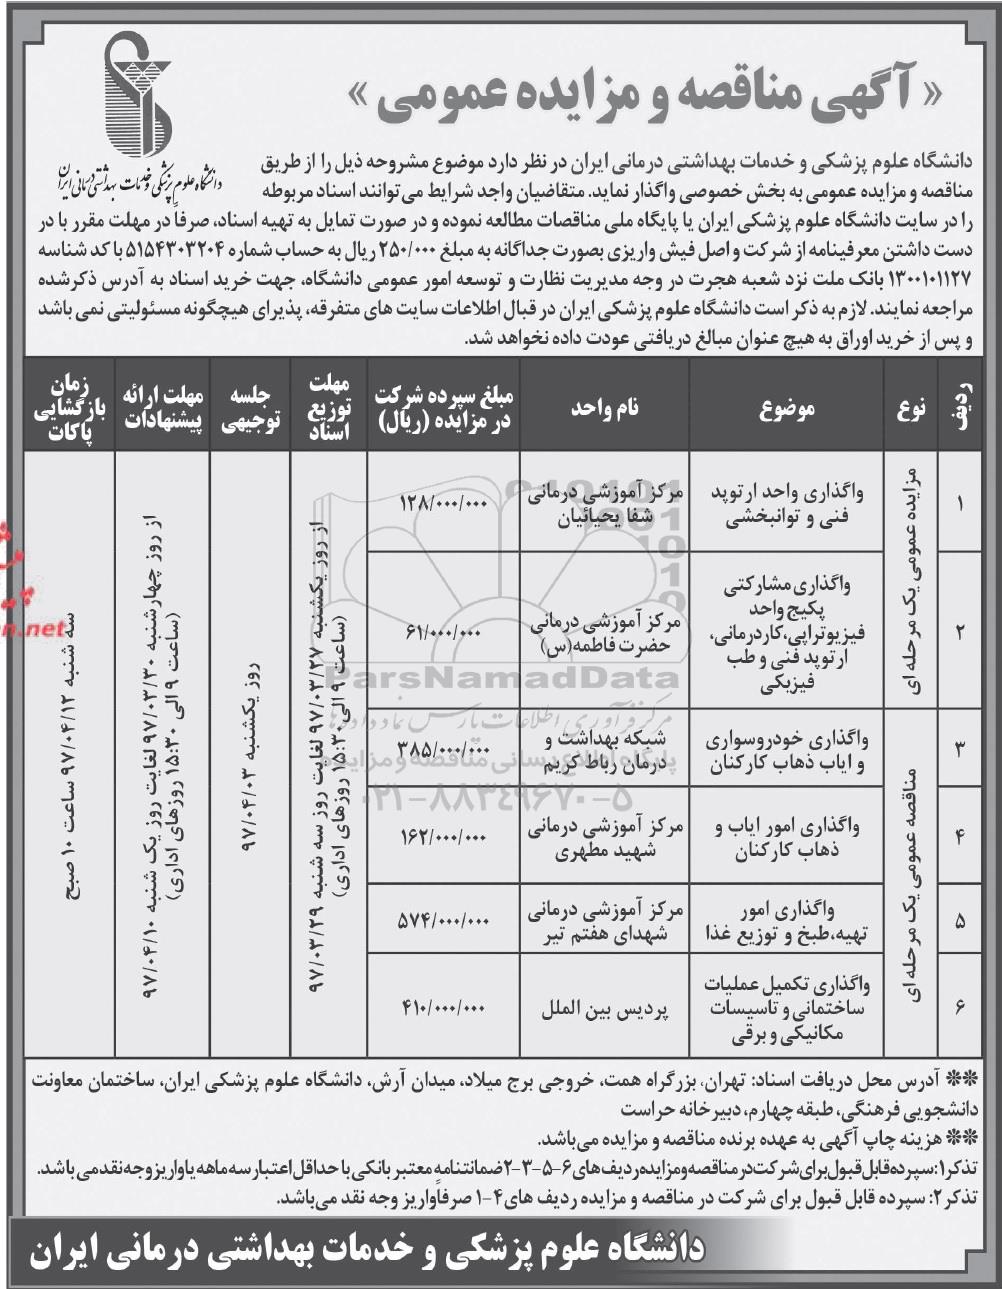 « آگهی مناقصه و مزایده عمومی »
دانشگاه علوم پزشکی و خدمات بهداشتی درمانی ایران
دانشگاه علوم پزشکی و خدمات بهداشتی درمانی ایران در نظر دارد موضوع مشروحه ذیل را از طریق
مناقصه و مزایده عمومی به بخش خصوصی واگذار نماید. متقاضیان واجد شرایط می‌توانند اسناد مربوطه
را در سایت دانشگاه علوم پزشکی ایران یا پایگاه ملی مناقصات مطالعه نموده و در صورت تمایل به تهیه اسناد، صرفاً در مهلت مقرر با در
دست داشتن معرفینامه از شرکت و اصل فیش واریزی بصورت جداگانه به مبلغ ۲۵۰/۰۰۰ ریال به حساب شماره ۵۱۵۴۳۰۳۲۰۴ با کد شناسه
۱۳۰۰۱۰۱۱۲۷ بانک ملت نزد شعبه هجرت در وجه مدیریت نظارت و توسعه امور عمومی دانشگاه، جهت خرید اسناد به آدرس ذکرشده
مراجعه نمایند. لازم به ذکر است دانشگاه علوم پزشکی ایران در قبال اطلاعات سایت های متفرقه، پذیرای هیچگونه مسئولیتی نمی باشد
و پس از خرید اوراق به هیچ عنوان مبالغ دریافتی عودت داده نخواهد شد.
ردیف
نوع
موضوع
نام واحد
مبلغ سپرده شرکت
در مزایده (ریال)
مهلت
توزیع
اسناد
جلسه
توجیهی
مهلت ارائه
پیشنهادات
زمان
بازگشایی
پاکات
۱
مزایده عمومی یک مرحله ای
واگذاری واحد ارتوپد
فنی و توانبخشی
مرکز آموزشی درمانی
شفا یحیائیان
۱۲۸/۰۰۰/۰۰۰
از روز یکشنبه ۹۷/۰۳/۲۷ لغایت روز سه شنبه ۹۷/۰۳/۲۹
(ساعت ۹ الی ۱۵:۳۰ روزهای اداری)
روز یکشنبه ۹۷/۰۴/۰۳
از روز چهارشنبه ۹۷/۰۳/۳۰ لغایت روز یک شنبه ۹۷/۰۴/۱۰
(ساعت ۹ الی ۱۵:۳۰ روزهای اداری)
سه شنبه ۹۷/۰۴/۱۲ ساعت ۱۰ صبح
۲
واگذاری مشارکتی
پکیج واحد
فیزیوتراپی،کاردرمانی،
ارتوپد فنی و طب
فیزیکی
مرکز آموزشی درمانی
حضرت فاطمه(س)
۶۱/۰۰۰/۰۰۰
۳
مناقصه عمومی یک مرحله ای
واگذاری خودروسواری
و ایاب ذهاب کارکنان
شبکه بهداشت و
درمان رباط کریم
۳۸۵/۰۰۰/۰۰۰
۴
واگذاری امور ایاب و
ذهاب کارکنان
مرکز آموزشی درمانی
شهید مطهری
۱۶۲/۰۰۰/۰۰۰
۵
واگذاری امور
تهیه،طبخ و توزیع غذا
مرکز آموزشی درمانی
شهدای هفتم تیر
۵۷۴/۰۰۰/۰۰۰
۶
واگذاری تکمیل عملیات
ساختمانی و تاسیسات
مکانیکی و برقی
پردیس بین الملل
۴۱۰/۰۰۰/۰۰۰
ParsNamadData
مرکز فرآوری اطلاعات پارس نماد داده‌ها
پایگاه اطلاع رسانی مناقصه و مزایده
۰۲۱-۸۸۳۴۹۶۷۰-۵
** آدرس محل دریافت اسناد: تهران، بزرگراه همت، خروجی برج میلاد، میدان آرش، دانشگاه علوم پزشکی ایران، ساختمان معاونت
دانشجویی فرهنگی، طبقه چهارم، دبیرخانه حراست
** هزینه چاپ آگهی به عهده برنده مناقصه و مزایده می‌باشد.
تذکر۱: سپرده قابل قبول برای شرکت در مناقصه و مزایده ردیف های ۶-۵-۳-۲ ضمانتنامه معتبر بانکی با حداقل اعتبار سه ماهه یا واریز وجه نقد می باشد.
تذکر۲: سپرده قابل قبول برای شرکت در مناقصه و مزایده ردیف های ۴-۱ صرفاً واریز وجه نقد می‌باشد.
دانشگاه علوم پزشکی و خدمات بهداشتی درمانی ایران